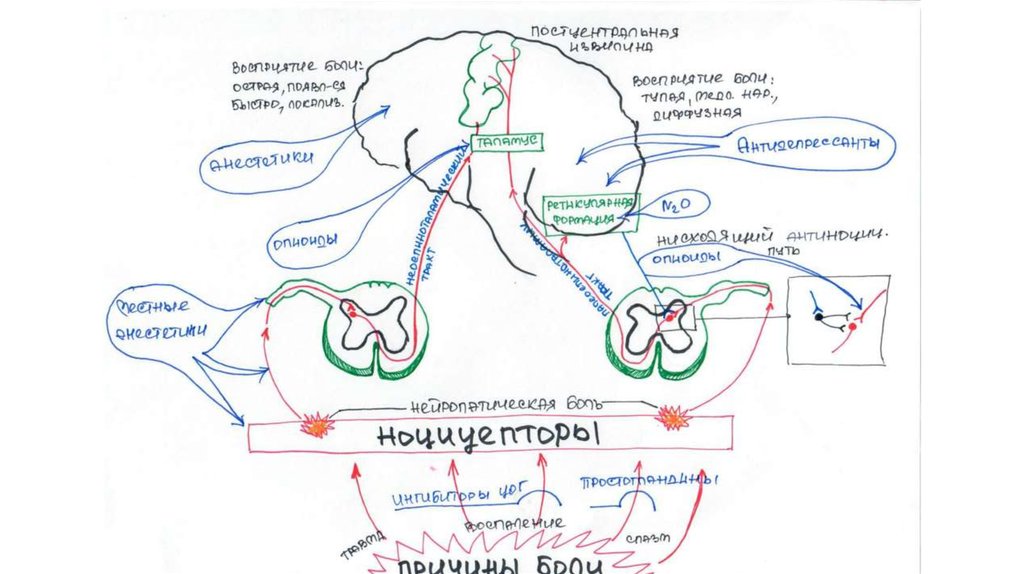 ПОСТЦЕНТРАЛЬНАЯ
ИЗВИЛИНА
ВОСПРИЯТИЕ БОЛИ:
ОСТРАЯ, ПОЯВЛ-СЯ
БЫСТРО, ЛОКАЛИЗ.
ВОСПРИЯТИЕ БОЛИ:
ТУПАЯ, МЕДЛ. НАР.,
ДИФФУЗНАЯ
АНЕСТЕТИКИ
ТАЛАМУС
АНТИДЕПРЕССАНТЫ
ОПИОИДЫ
НЕОСПИНОТАЛАМИЧЕСКИЙ
ТРАКТ
РЕТИКУЛЯРНАЯ
ФОРМАЦИЯ
N2O
ПАЛЕОСПИНОТАЛАМИЧ.
ТРАКТ
НИСХОДЯЩИЙ АНТИНОЦИЦ.
ПУТЬ
ОПИОИДЫ
МЕСТНЫЕ
АНЕСТЕТИКИ
НЕЙРОПАТИЧЕСКАЯ БОЛЬ
НОЦИЦЕПТОРЫ
ИНГИБИТОРЫ ЦОГ
ПРОСТОГЛАНДИНЫ
ТРАВМА
ВОСПАЛЕНИЕ
СПАЗМ
ПРИЧИНЫ БОЛИ